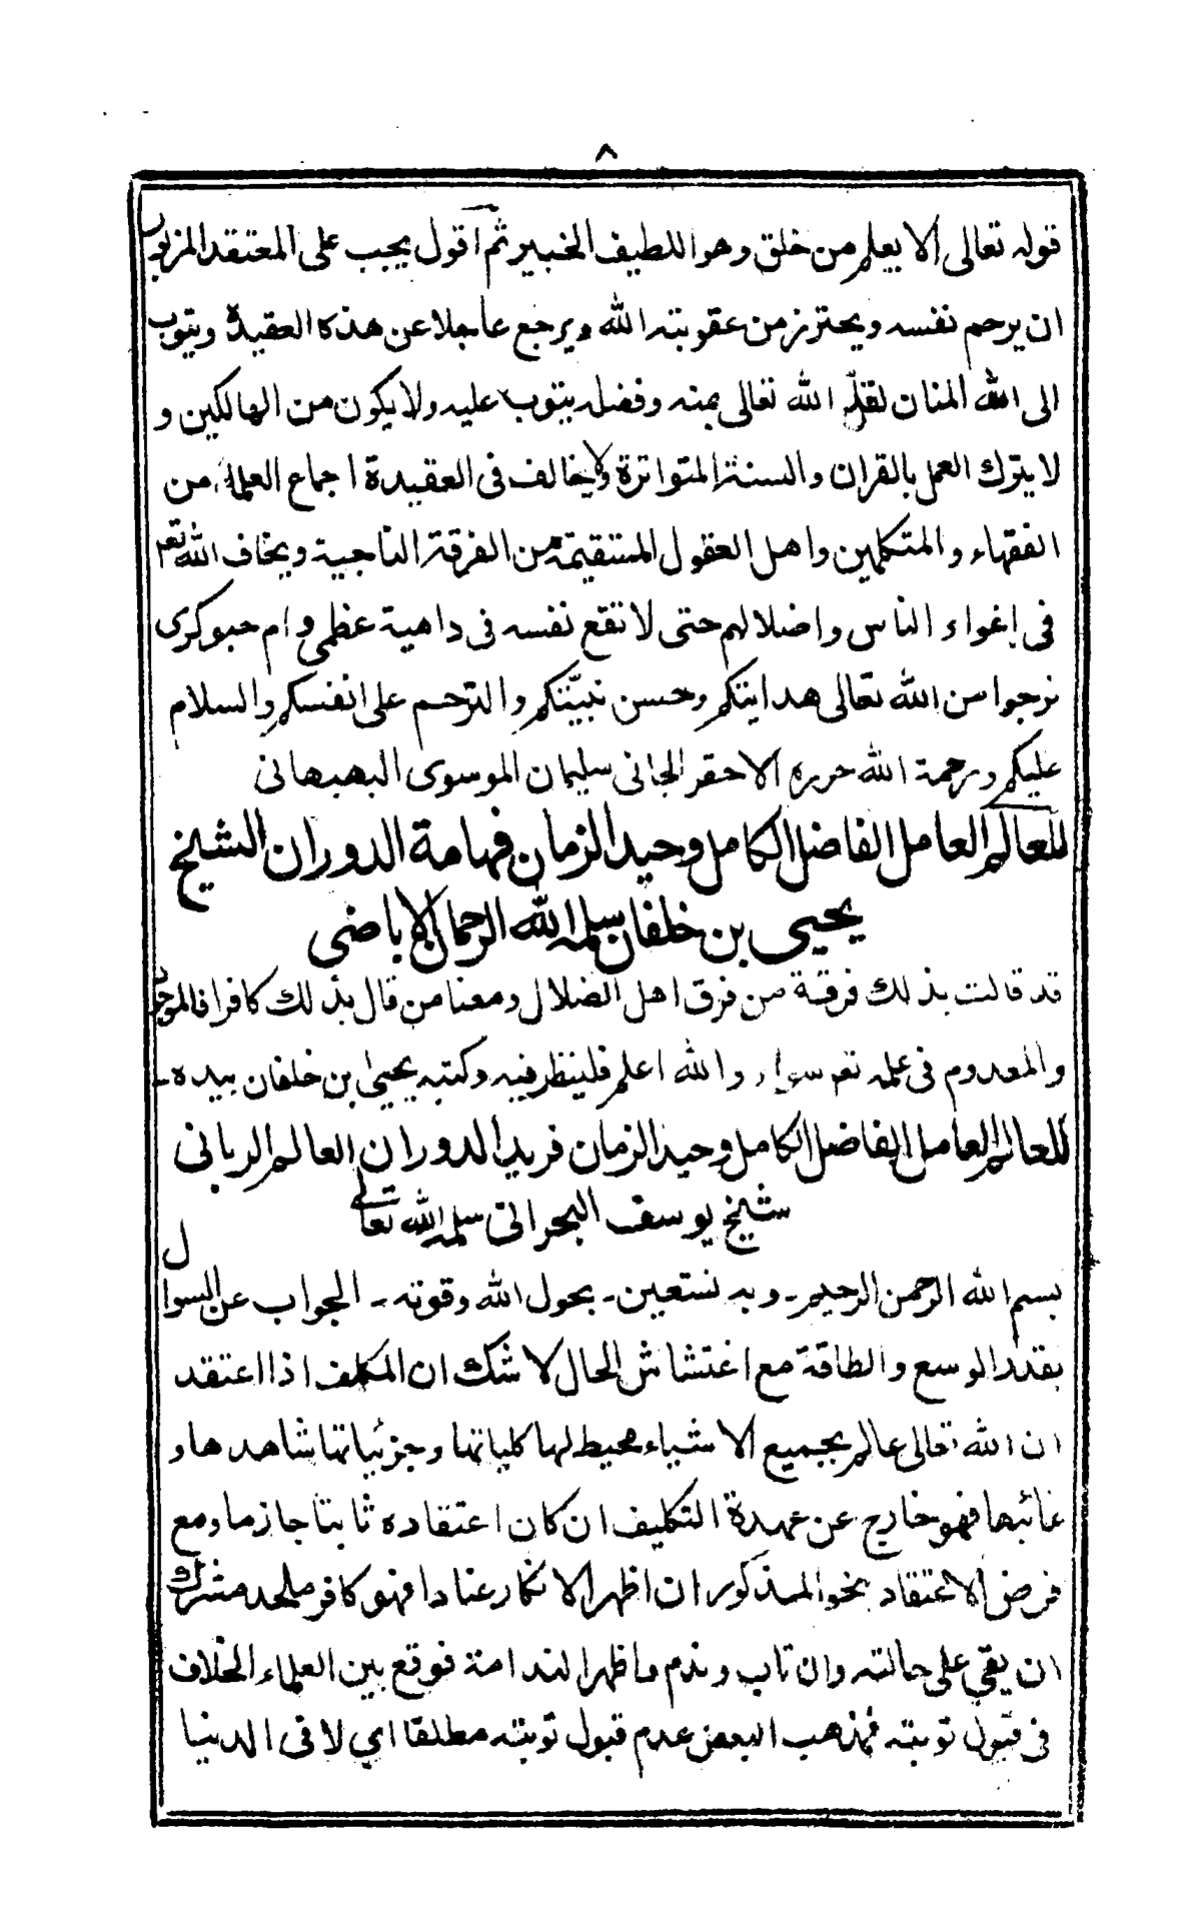 ٨
قوله تعالى الا يعلم من خلق وهو اللطيف الخبير ثم اقول يجب على المعتقد المزبور
ان يرحم نفسه ويحترز من عقوبته الله ويرجع عاجلا عن هذه العقيدة ويتوب
الى الله المنان لعلّ الله تعالى بمنه وفضله يتوب عليه ولا يكون من الهالكين و
لا يترك العمل بالقران والسنة المتواترة ولا يخالف فى العقيدة اجماع العلماء من
الفقهاء والمتكلمين واهل العقول المستقيمة من الفرقة الناجية ويخاف الله تعم
فى إغواء الناس واضلالهم حتى لا تقع نفسه فى داهية عظمى وام حبوكرى
نرجوا من الله تعالى هدايتكم وحسن نيّتكم والترحم على انفسكم والسلام
عليكم ورحمة الله حرره الاحقر الجانى سليمان الموسوى البهبهانى
للعالم العامل الفاضل الكامل وحيد الزمان فهامة الدوران الشيخ
يحيى بن خلفان سلمه الله الرحمان الاباضى
قد قالت بذلك فرقة من فرق اهل الضلال ومعنا من قال بذلك كافرا فالموجود
والمعدوم فى علمه تعم سواء والله اعلم فلينظر فيه وكتبه يحيىٰ بن خلفان بيده -
للعالم العامل الفاضل الكامل وحيد الزمان فريد الدوران العالم الربانى
شيخ يوسف البحرانى سلمه الله تعالى
بسم الله الرحمن الرحيم - وبه نستعين - بحول الله وقوته - الجواب عن السوال
بقدر الوسع والطاقة مع اغتشاش الحال لا شك ان المكلف اذا اعتقد
ان الله تعالى عالم بجميع الاشياء محيط لها كلياتها وجزئياتها شاهدها و
غائبها فهو خارج عن عهدة التكليف ان كان اعتقاده ثابتا جازما ومع
فرض الاعتقاد بنحو المذكور ان اظهر الانكار عنادا فهو كافر ملحد مشرك
ان بقي على حالته وان تاب وندم واظهر الندامة فوقع بين العلماء الخلاف
فى قبول توبته فمذهب البعض عدم قبول توبته مطلقا اي لا فى الدنيا